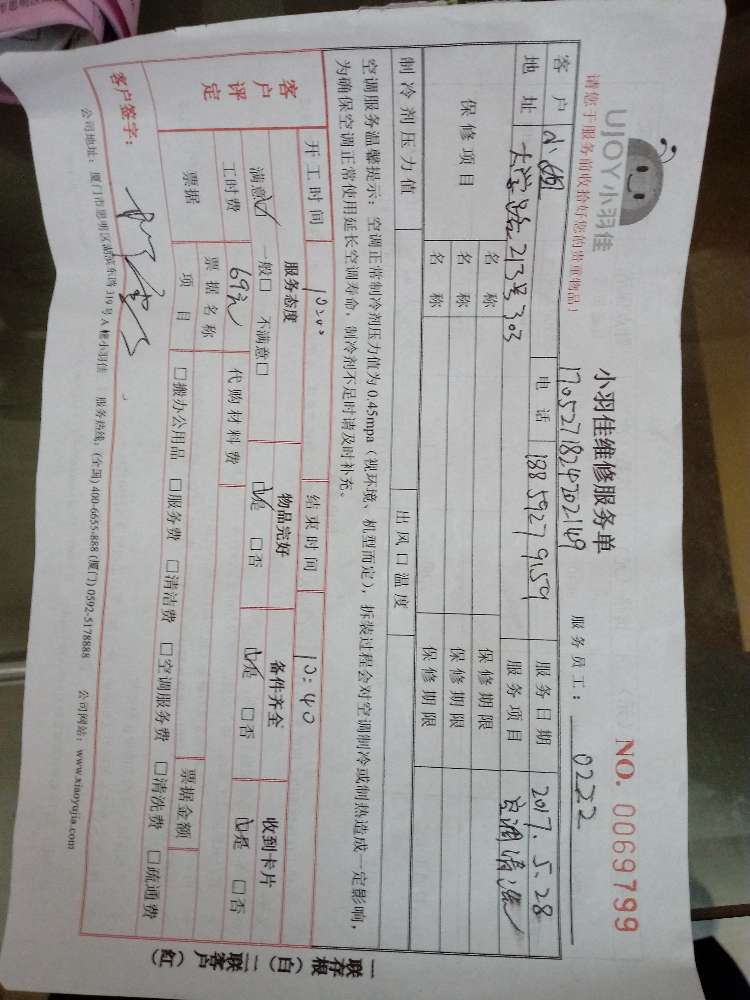 UJOY小羽佳
小羽佳维修服务单
NO. 0069799
请您于服务前收拾好您的贵重物品!
1705271824202149
服务员工: 0222
客户 小姐 电话 18859279159 服务日期 2017.5.28
地址 大学路213号303 服务项目 空调清洗
保修项目 名称 保修期限
名称 保修期限
名称 保修期限
制冷剂压力值 出风口温度
空调服务温馨提示:空调正常制冷剂压力值为0.45mpa(视环境、机型而定),拆装过程会对空调制冷或制热造成一定影响,
为确保空调正常使用延长空调寿命,制冷剂不足时请及时补充。
开工时间 10:00 结束时间 10:40
客户评定 服务态度 物品完好 备件齐全 收到卡片
满意☑ 一般□ 不满意□ ☑是 □否 ☑是 □否 ☑是 □否
工时费 69元 代购材料费
票据 票据名称 票据金额
项目 □搬办公用品 □服务费 □清洁费 □空调服务费 □清洗费 □疏通费
客户签字:
公司地址:厦门市思明区湖滨东路319号A楼小羽佳 服务热线:(全国) 400-6655-888 (厦门) 0592-5178888 公司网站:www.xiaoyujia.com
一联存根(白) 二联客户(红)